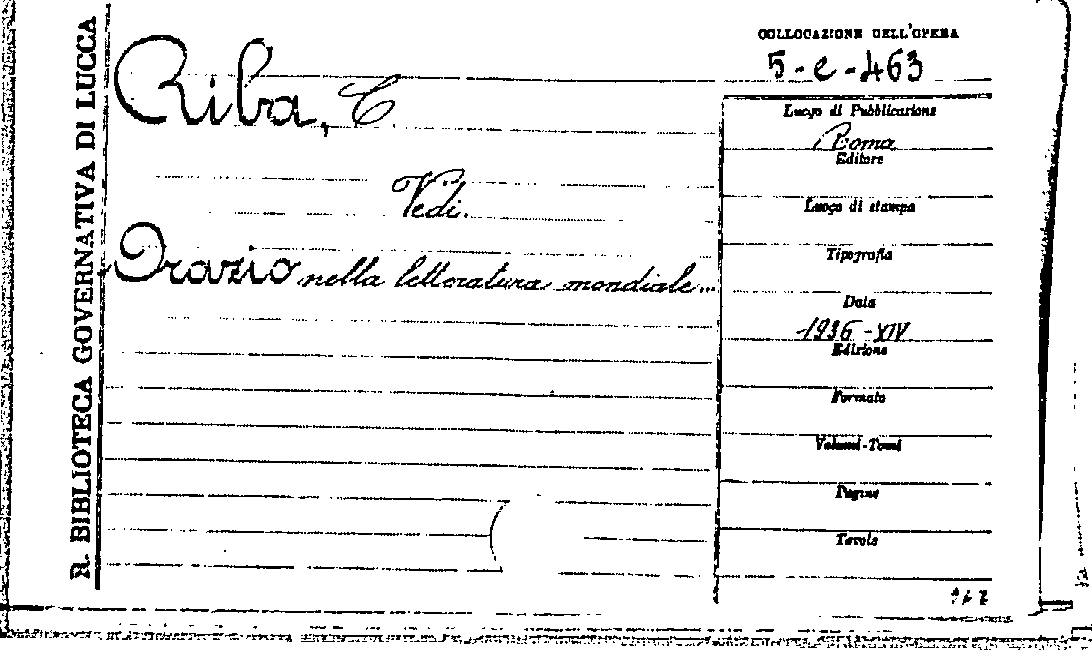 R. BIBLIOTECA GOVERNATIVA DI LUCCA
Riba, C.
Vedi.
Orazio nella letteratura mondiale...
COLLOCAZIONE DELL'OPERA
5-e-463
Luogo di Pubblicazione
Roma
Editore
Luogo di stampa
Tipografia
Data
1936-XIV
Edizione
Formato
Volumi-Tomi
Pagine
Tavole